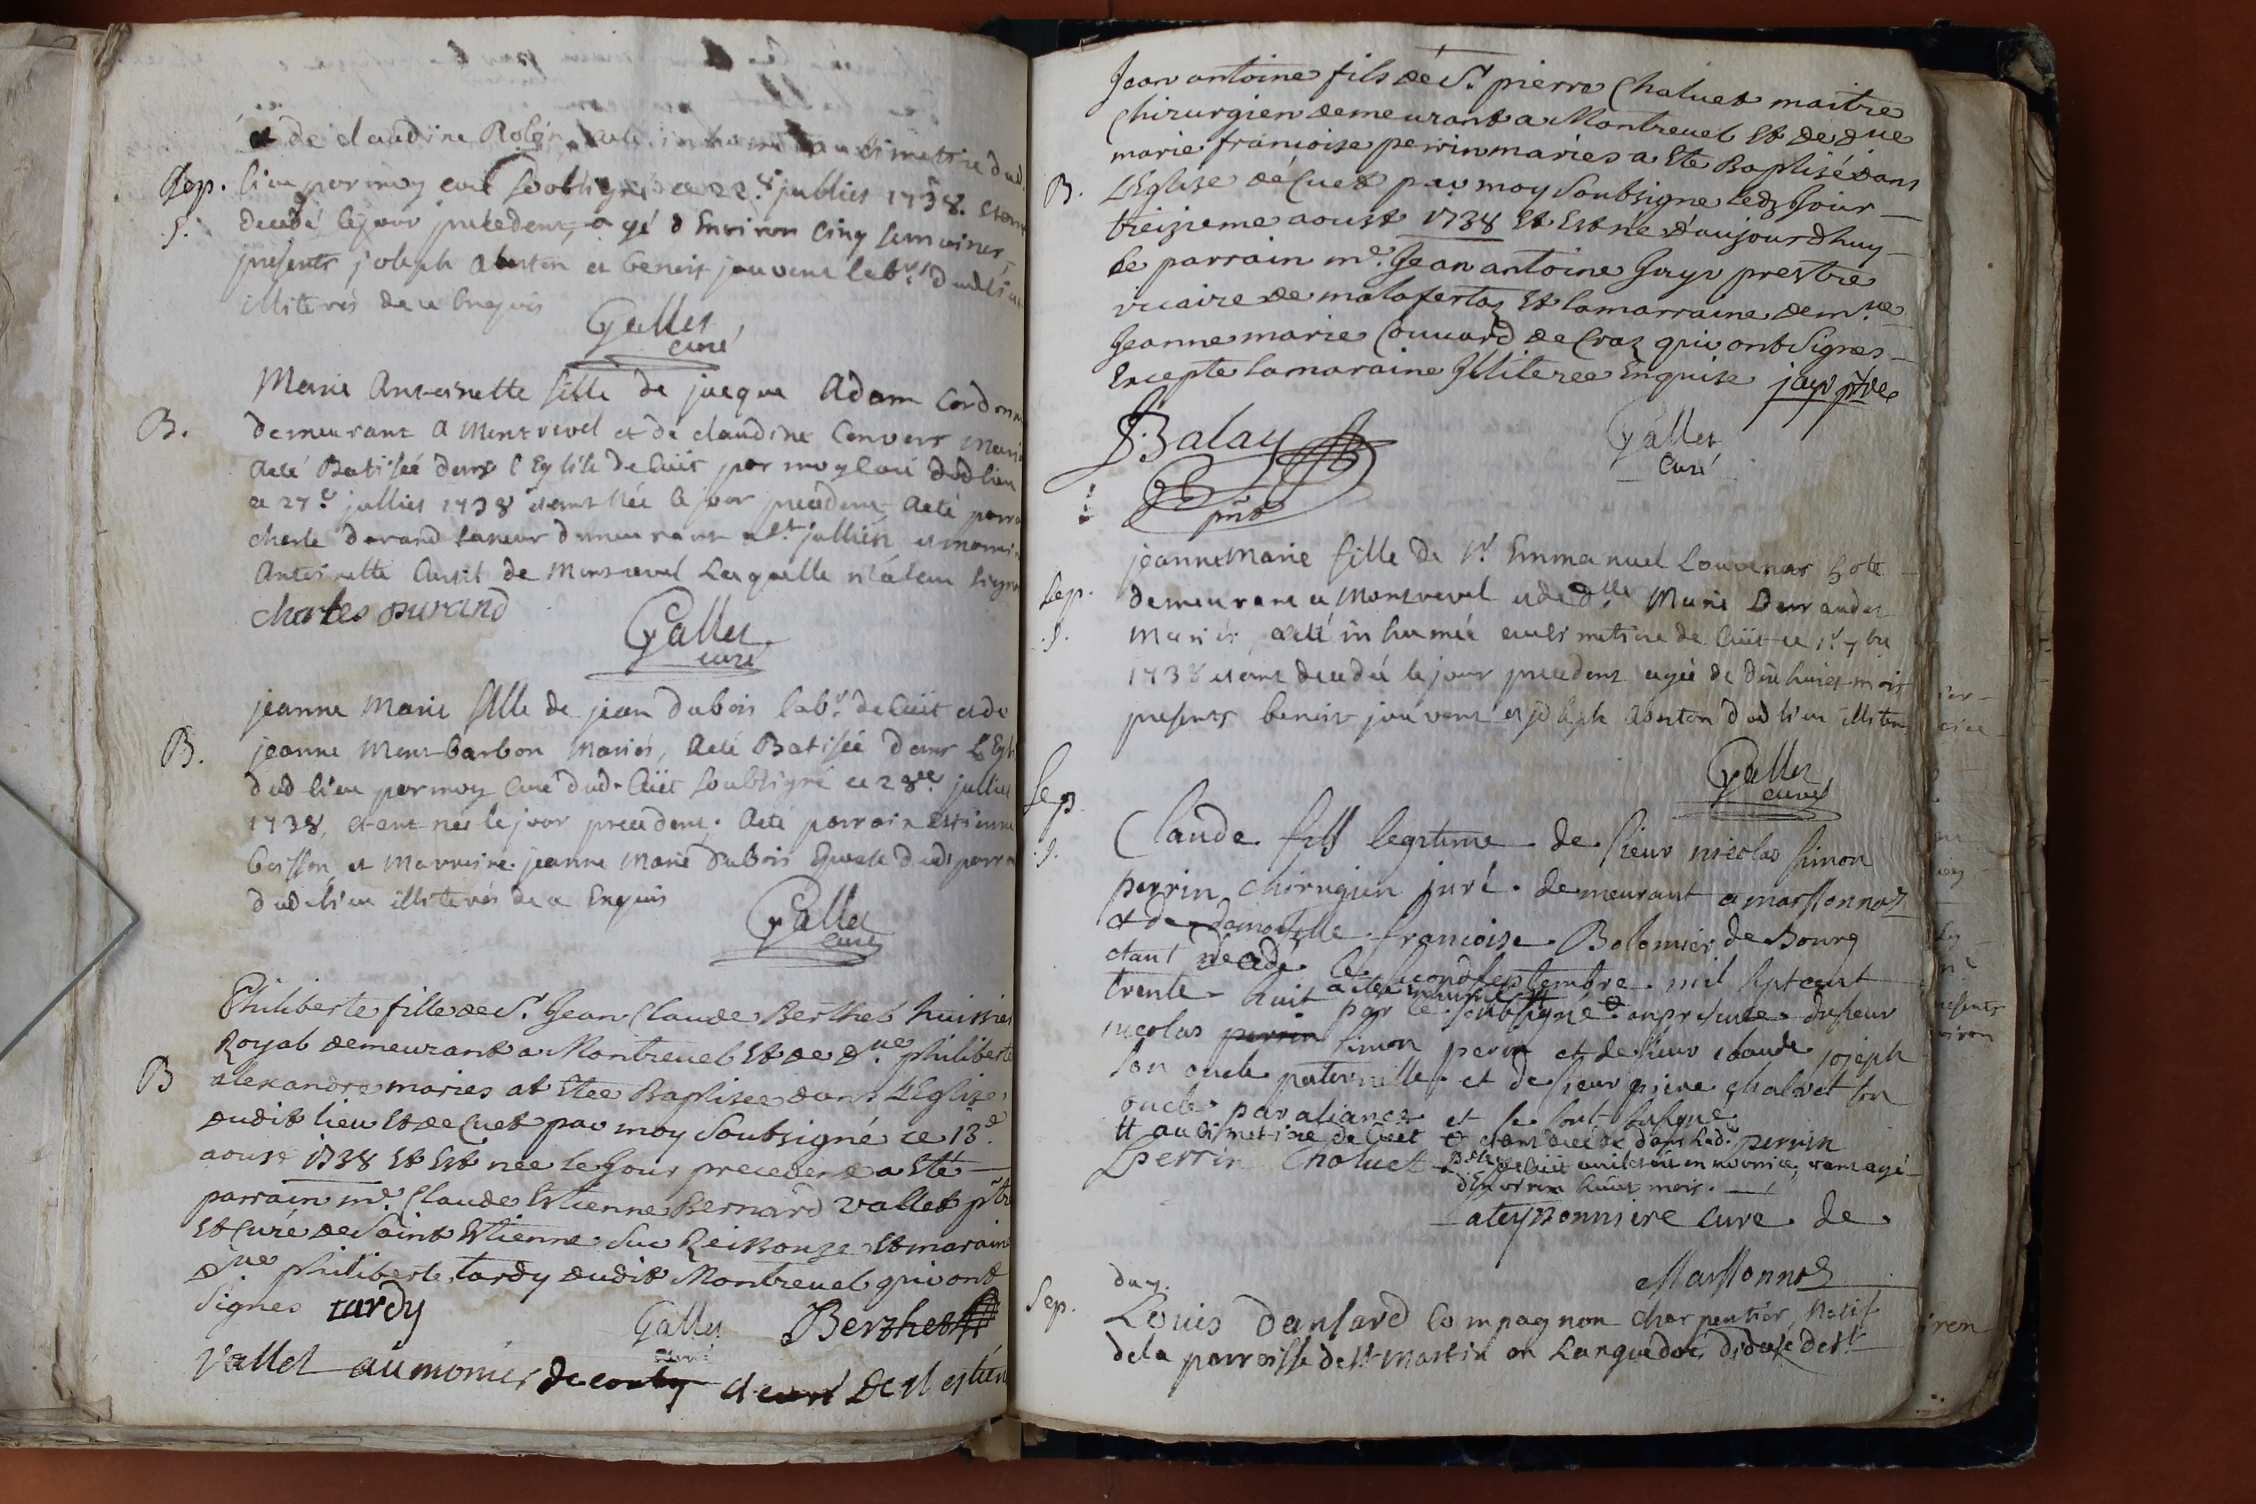 et de claudine Robin, a été inhumé au Simetire dud.
Sep. lieu par moy curé soubsigné ce 22.e julliet 1738. etant
5. decedé le jour precedent, agé d'Environ Cinq semaines,
presents joseph aberton et benoit jouvent lab.rs dudlieu
illiterés de ce Enquis
Gallet
curé
Marie Antoinette fille de jacque Adam Cordon
B. demeurant a Montrevel et de claudine Convers Mariés
a été Batisée dans l'Eglise de Cüet par moy Curé dudlieu
ce 27.e julliet 1738 etant Née le jour precedent a été parra
charle durand demeurant a St jullien et marrai
Antoinette de Montrevel Laquelle n'a sceu signe
charles Durand
Gallet
curé
jeanne Marie fille de jean dubois lab.r de Cüet et de
B. jeanne Mont-barbon Mariés, a été Batisée dans L'Egl
dud lieu par moy Curé dud. Cüet soubsigné ce 28.e julliet
1738, etant née le jour precedent. a été parrain estienne
boisson et Marreine jeanne Marie dubois dud. parra
dudelieu illiterés de ce Enquis
Gallet
curé
Philiberte fille de S.r Jean Claude Berthet huissier
Royal demeurant a Montreuel Et de d.lle philiberte
B alexandre maries at Etee Baptisee dans L'Eglise
dudit lieu Et de Cuet par moy Soubsigné ce 13.e
aoust 1738 Et Est née le Jour precedent a Eté
parrain m.e Claude Estienne Bernard Vallet p.tre
Et Curé de Saint Estienne Sur Reissouze Et maraine
d.lle philiberte tardy dudit Montreuel qui ont
Signes tardy
Gallet Berthet
curé
Vallet aumonier de et curé De st estien
Jean antoine fils de S.r pierre Chaluet maitre
Chirurgien demeurant a Montreuel Et de d.lle
marie francoise perrin maries a Ete Baptisé dans
B. L'Eglise de Cuet par moy Soubsigne Jour
treizieme aoust 1738 Et Est né d'aujourdhuy
Le parrain m.e Jean antoine Jayr prestre
vicaire de malafertaz Et la marraine dem.lle
Jeanne marie Couuard de Craz qui ont Signes
Excepte la maraine Illiteree Enquise jayr ptre
Balay
Gallet
Curé
pñt
jeanne Marie fille de S.r Emmanuel Louvenar hote
Sep. demeurant a Montrevel et de d.lle Marie Durandet
.5. Mariés, a été in humée au Simetire de Cüet ce 1.r 7bre
1738 etant decedée le jour precedent agée de dix huict mois
presents benoit jouvent et joseph aberton dudlieu illiter
Gallet
curé
Sep.
.5. Claude fils legitime de sieur nicolas simon
perrin chirugien juré demeurant a marssonnaz
et de damoiselle francoise Bolomier de Bourg
etant decedé le second septembre mil sept cent
trente huit a été inhumé # par le soubsigné en presence du sieur
nicolas perrin simon perin et de sieur claude joseph
son oncle paternelle et de sieur piere chalvet son
oncle par aliance et se sont susigné
# au Simetire de Cüet et etant decedé dans lad.
perrin
Lperrin Chaluet psse de Cüet ou il etoit en nourrice, etant agé
d'Environ huict mois.
Lateyssonniere cure de
Marssonnas
duy.
Sep. Louis Dansard Compagnon charpentier, Natif
de la parroisse de st Martin en Languedoc, diocese de st